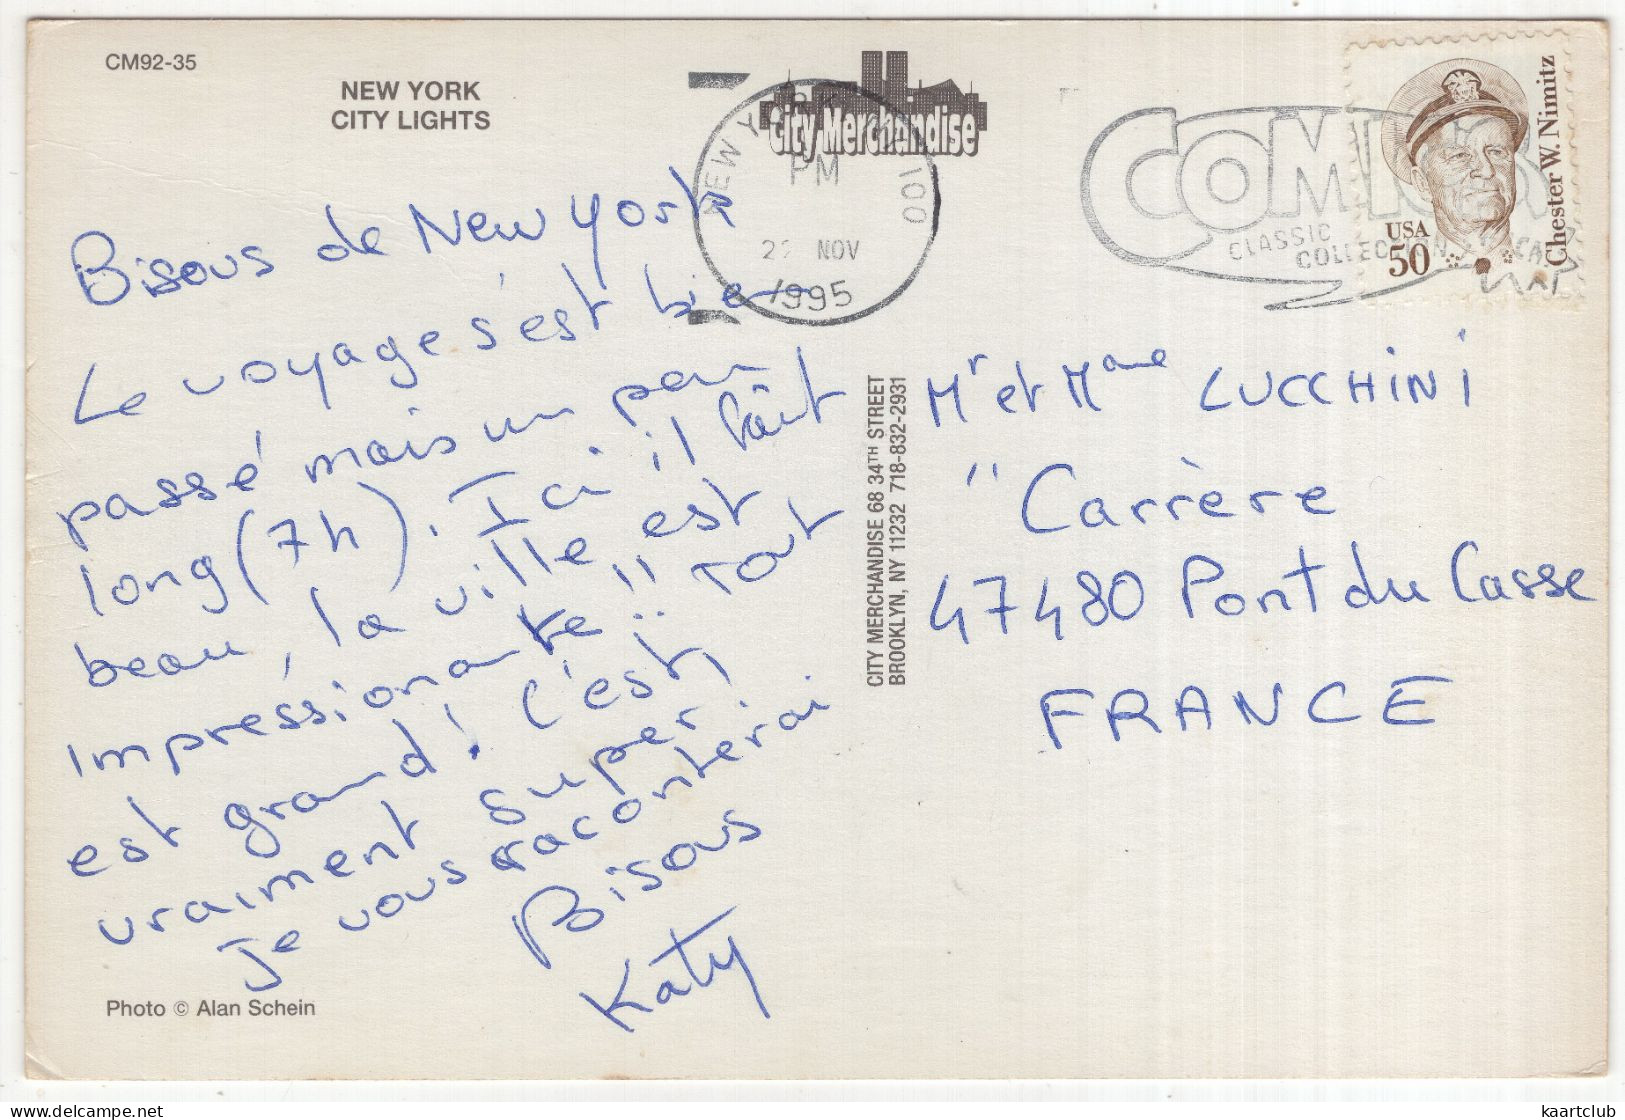 CM92-35
NEW YORK
CITY LIGHTS
City Merchandise
NEW YORK
100
PM
22 NOV
1995
COMICS
CLASSIC
COLLECTION
USA
50
Chester W. Nimitz
Bisous de New York
Le voyage s'est bien
passé mais un peu
long (7h). Ici il fait
beau, la ville est
impressionante !! Tout
est grand ! C'est
vraiment super,
Je vous raconterai
Bisous
Katy
Photo © Alan Schein
CITY MERCHANDISE 68 34TH STREET
BROOKLYN, NY 11232 718-832-2931
Mr et Mame LUCCHINI
"Carrère
47480 Pont du Casse
FRANCE
kaartclub